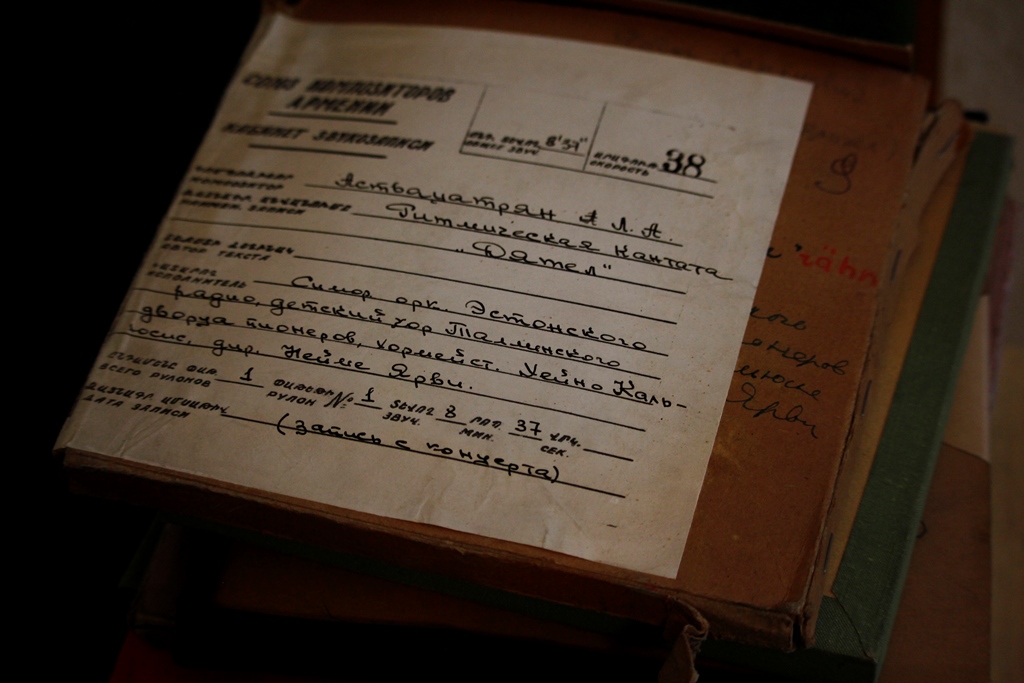 СОЮЗ КОМПОЗИТОРОВ
АРМЕНИИ
КАБИНЕТ ЗВУКОЗАПИСИ
8'37"
ОБЩЕЕ ЗВУЧ.
СКОРОСТЬ
38
КОМПОЗИТОР
Аствацатрян А Л. А.
НАИМЕН. ЗАПИСИ
Ритмическая кантата
"Дятел"
АВТОР ТЕКСТА
ИСПОЛНИТЕЛЬ
Симф орк. Эстонского
радио, детский хор Таллинского
дворца пионеров, хормейст. Хейно Каль-
юсте, дир. Нейме Ярви.
ВСЕГО РУЛОНОВ 1 РУЛОН № 1 ЗВУЧ. 8 МИН. 37 СЕК.
ДАТА ЗАПИСИ
(запись с концерта)
Ярви